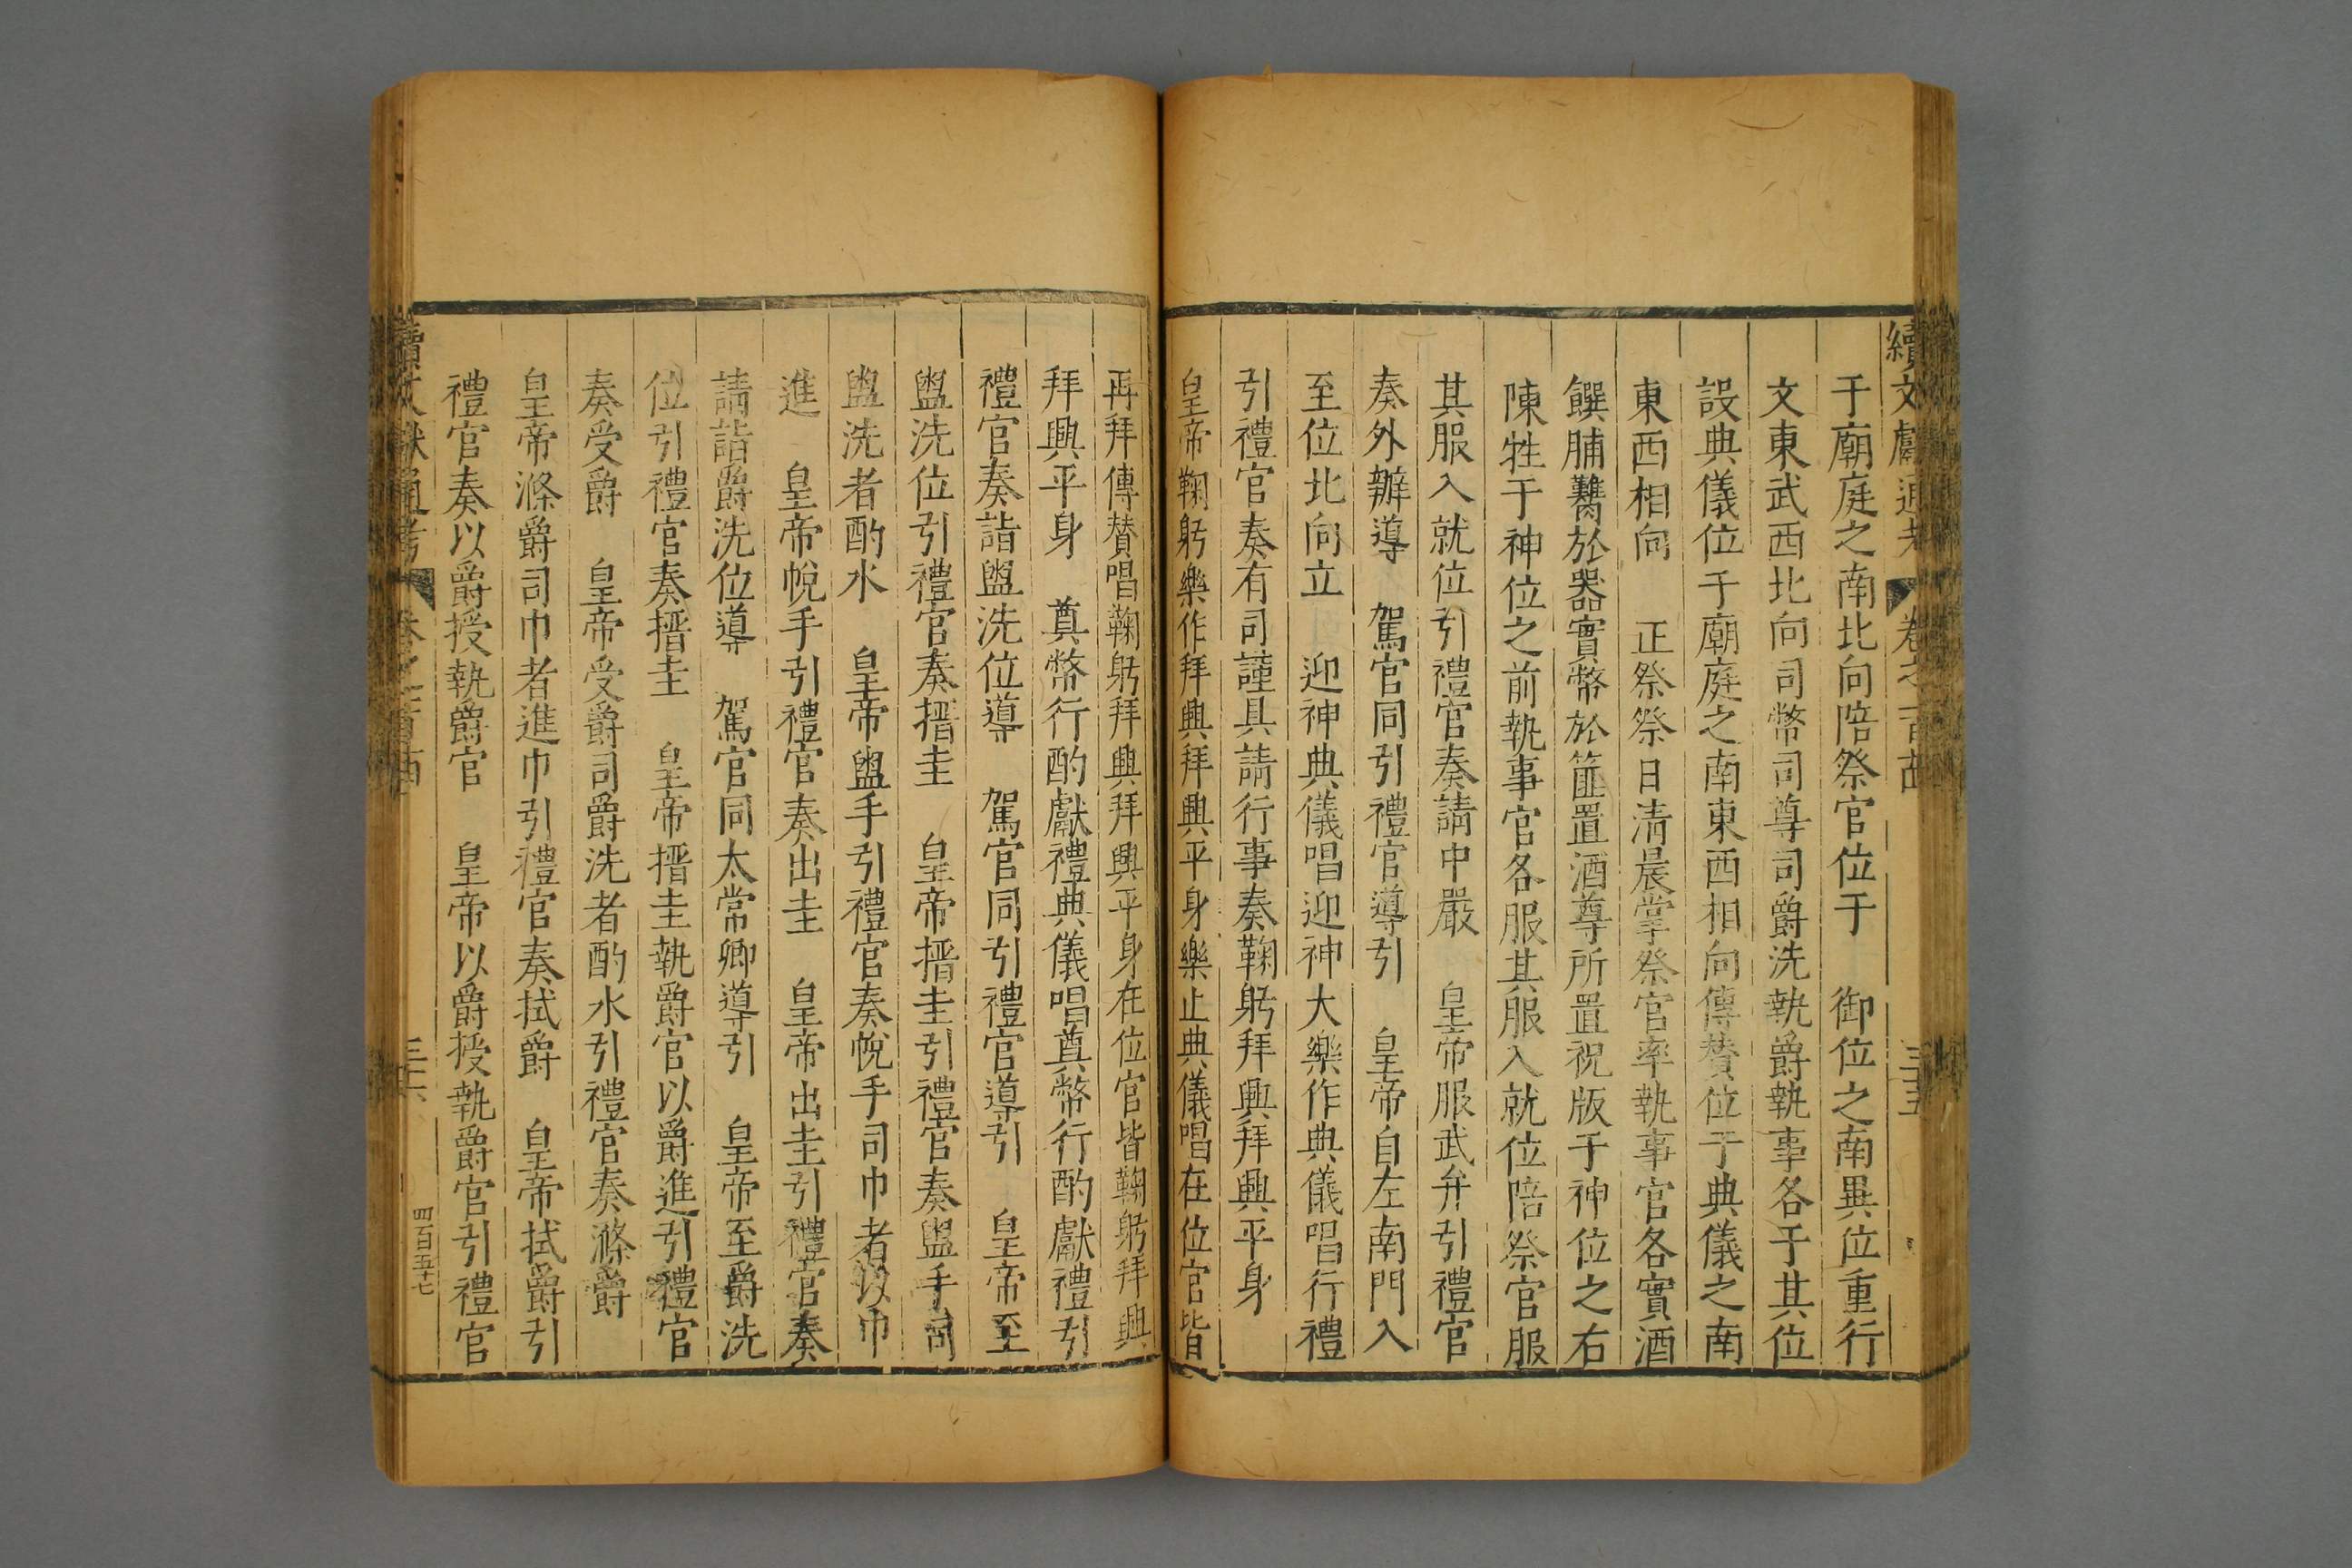 續文獻通考 卷之一百 三十五
于廟庭之南北向陪祭官位于 御位之南異位重行
文東武西北向司幣司尊司爵洗執爵執事各于其位
設典儀位于廟庭之南東西相向傳贊位于典儀之南
東西相向 正祭祭日清晨掌祭官率執事官各實酒
饌脯醢於器實幣於篚置酒尊所置祝版于神位之右
陳牲于神位之前執事官各服其服入就位陪祭官服
其服入就位引禮官奏請中嚴 皇帝服武弁引禮官
奏外辦導 駕官同引禮官導引 皇帝自左南門入
至位北向立 迎神典儀唱迎神大樂作典儀唱行禮
引禮官奏有司謹具請行事奏鞠躬拜興拜興平身
皇帝鞠躬樂作拜興拜興平身樂止典儀唱在位官皆
再拜傳贊唱鞠躬拜興拜興平身在位官皆鞠躬拜興
拜興平身 奠幣行酌獻禮典儀唱奠幣行酌獻禮引
禮官奏詣盥洗位導 駕官同引禮官導引 皇帝至
盥洗位引禮官奏搢圭 皇帝搢圭引禮官奏盥手司
盥洗者酌水 皇帝盥手引禮官奏帨手司巾者以巾
進 皇帝帨手引禮官奏出圭 皇帝出圭引禮官奏
請詣爵洗位導 駕官同太常卿導引 皇帝至爵洗
位引禮官奏搢圭 皇帝搢圭執爵官以爵進引禮官
奏受爵 皇帝受爵司爵洗者酌水引禮官奏滌爵
皇帝滌爵司巾者進巾引禮官奏拭爵 皇帝拭爵引
禮官奏以爵授執爵官 皇帝以爵授執爵官引禮官
續文獻通考 卷之一百 三十六 四百五十七